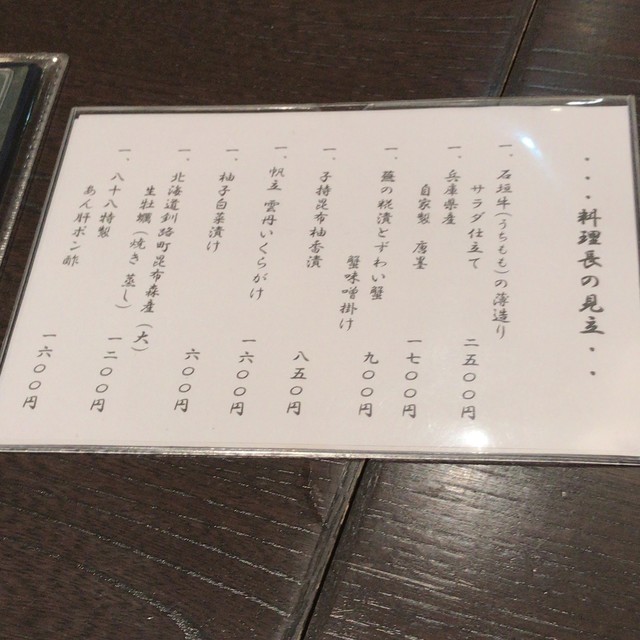 ・・・料理長の見立・・
一、石垣牛(うちもも)の薄造り
サラダ仕立て
二五〇〇円
一、兵庫県産
自家製 唐墨
一七〇〇円
一、蕪の糀漬とずわい蟹
蟹味噌掛け
九〇〇円
一、子持昆布柚香漬
八五〇円
一、帆立 雲丹いくらがけ
一六〇〇円
一、柚子白菜漬け
六〇〇円
一、北海道釧路町昆布森産(大)
生牡蠣(焼き 蒸し)
一二〇〇円
一、八十八特製
あん肝ポン酢
一六〇〇円